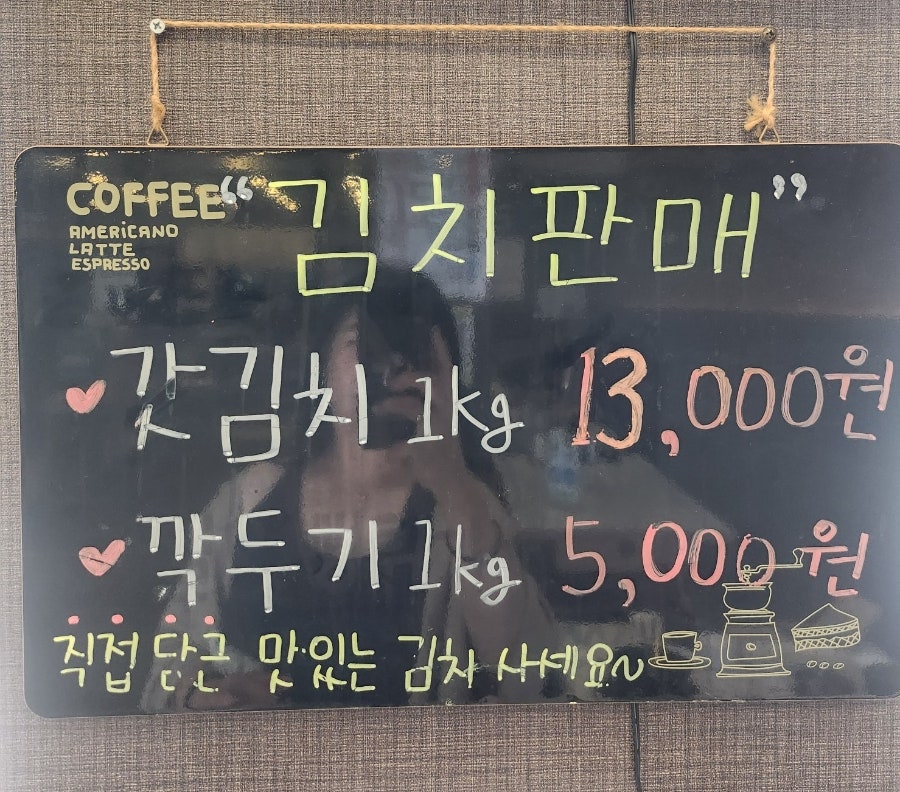 COFFEE
AMERICANO
LATTE
ESPRESSO
“김치판매”
갓김치 1kg 13,000원
깍두기 1kg 5,000원
직접 담근 맛있는 김치 사세요~